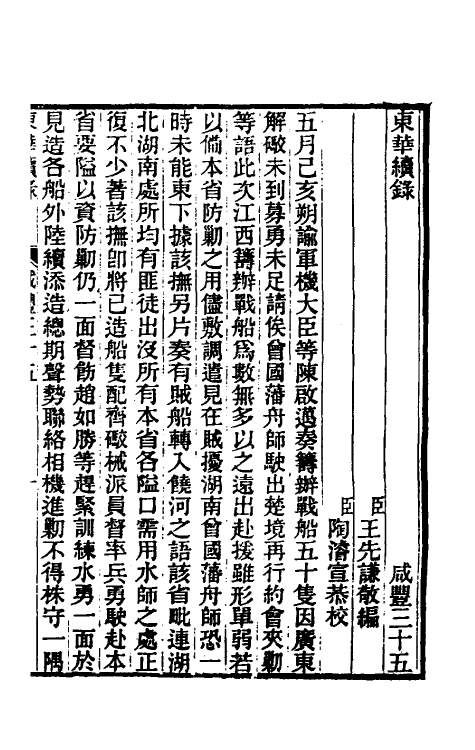 東華續錄 咸豐三十五
臣王先謙敬編
臣陶濬宣恭校
五月己亥朔諭軍機大臣等陳啟邁奏籌辦戰船五十隻因廣東
解礮未到募勇未足請俟曾國藩舟師駛出楚境再行約會夾勦
等語此次江西籌辦戰船為數無多以之遠出赴援雖形單弱若
以備本省防勦之用儘敷調遣見在賊擾湖南曾國藩舟師恐一
時未能東下據該撫另片奏有賊船轉入饒河之語該省毗連湖
北湖南處所均有匪徒出沒所有本省各隘口需用水師之處正
復不少著該撫卽將已造船隻配齊礮械派員督率兵勇駛赴本
省要隘以資防勦仍一面督飭趙如勝等趕緊訓練水勇一面於
見造各船外陸續添造總期聲勢聯絡相機進勦不得株守一隅
東華續錄 咸豐三十五 一